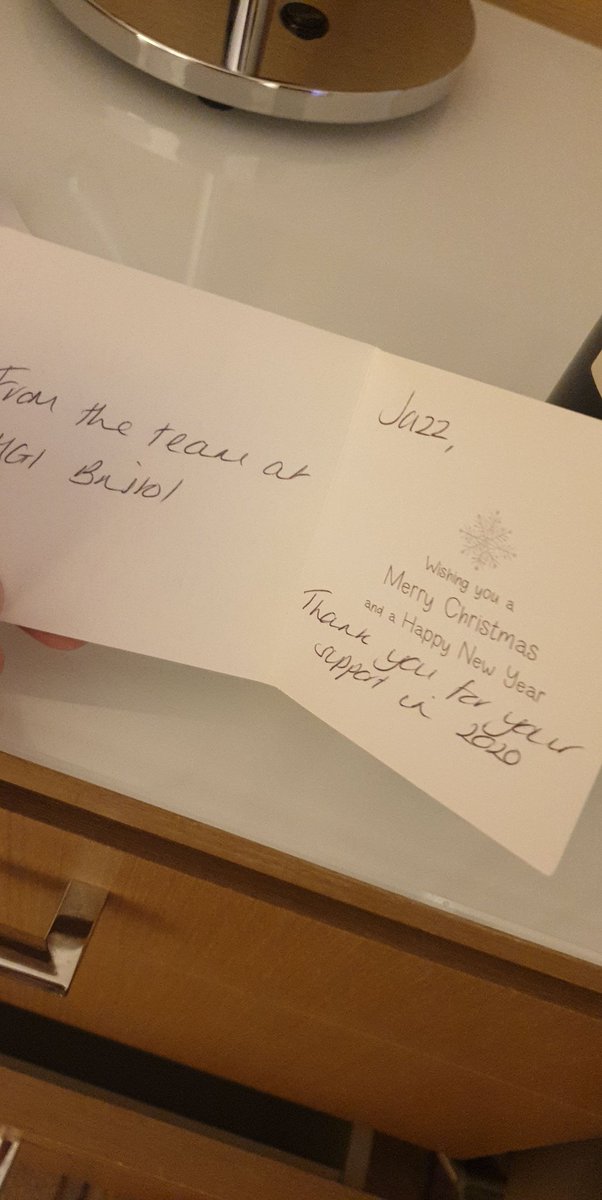 From the team at
HGI Bristol
Jazz,
Wishing you a
Merry Christmas
and a Happy New Year
Thank you for your
support in 2020